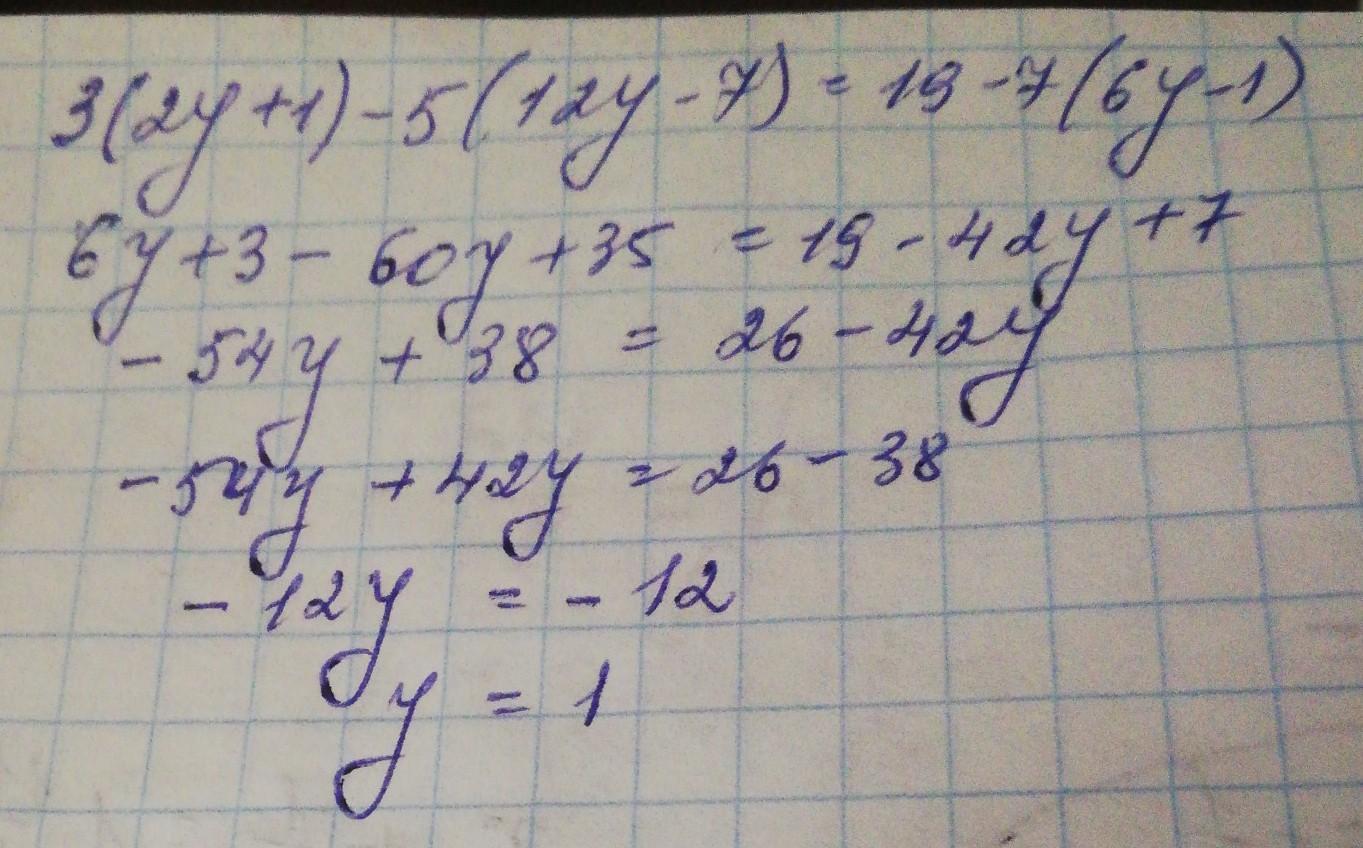 3(2y+1)-5(12y-7)=19-7(6y-1)
6y+3-60y+35=19-42y+7
-54y+38=26-42y
-54y+42y=26-38
-12y=-12
y=1